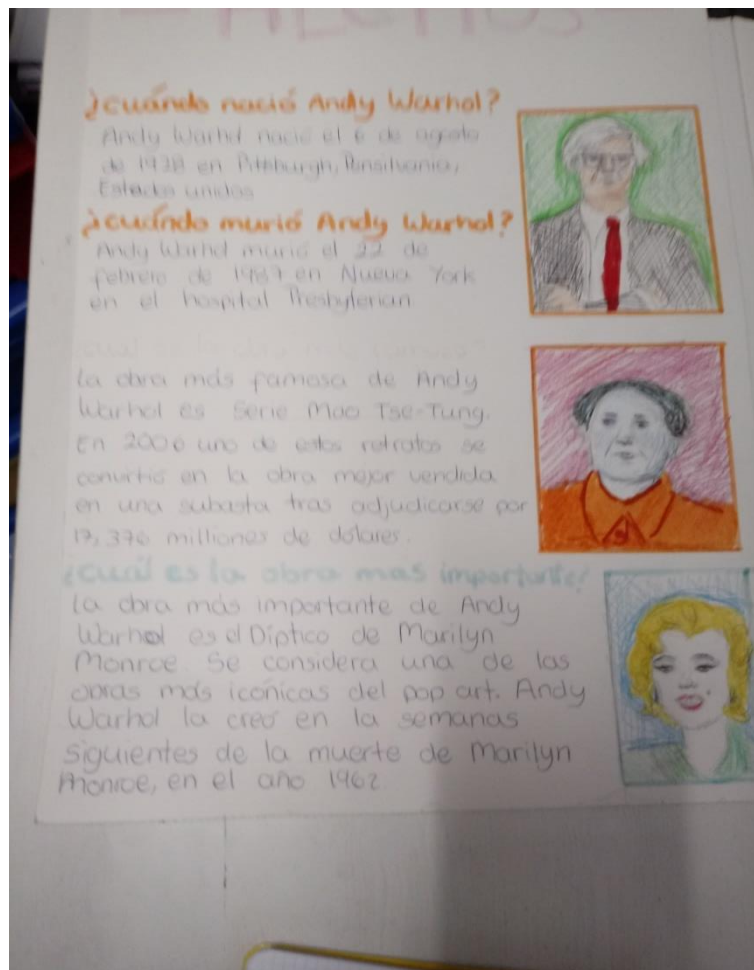 HECHOS
¿cuándo nació Andy Warhol?
Andy Warhol nació el 6 de agosto
de 1928 en Pittsburgh, Pensilvania,
Estados unidos
¿cuándo murió Andy Warhol?
Andy Warhol murió el 22 de
febrero de 1987 en Nueva York
en el hospital Presbyterian
¿cuál es la obra más famosa?
la obra más famosa de Andy
Warhol es Serie Mao Tse-Tung.
En 2006 uno de estos retratos se
convirtió en la obra mejor vendida
en una subasta tras adjudicarse por
17,376 milliones de dólares.
¿cuál es la obra mas importante?
la obra más importante de Andy
Warhol es el Díptico de Marilyn
Monroe. Se considera una de las
obras más icónicas del pop art. Andy
Warhol la creó en la semanas
siguientes de la muerte de Marilyn
Monroe, en el año 1962.